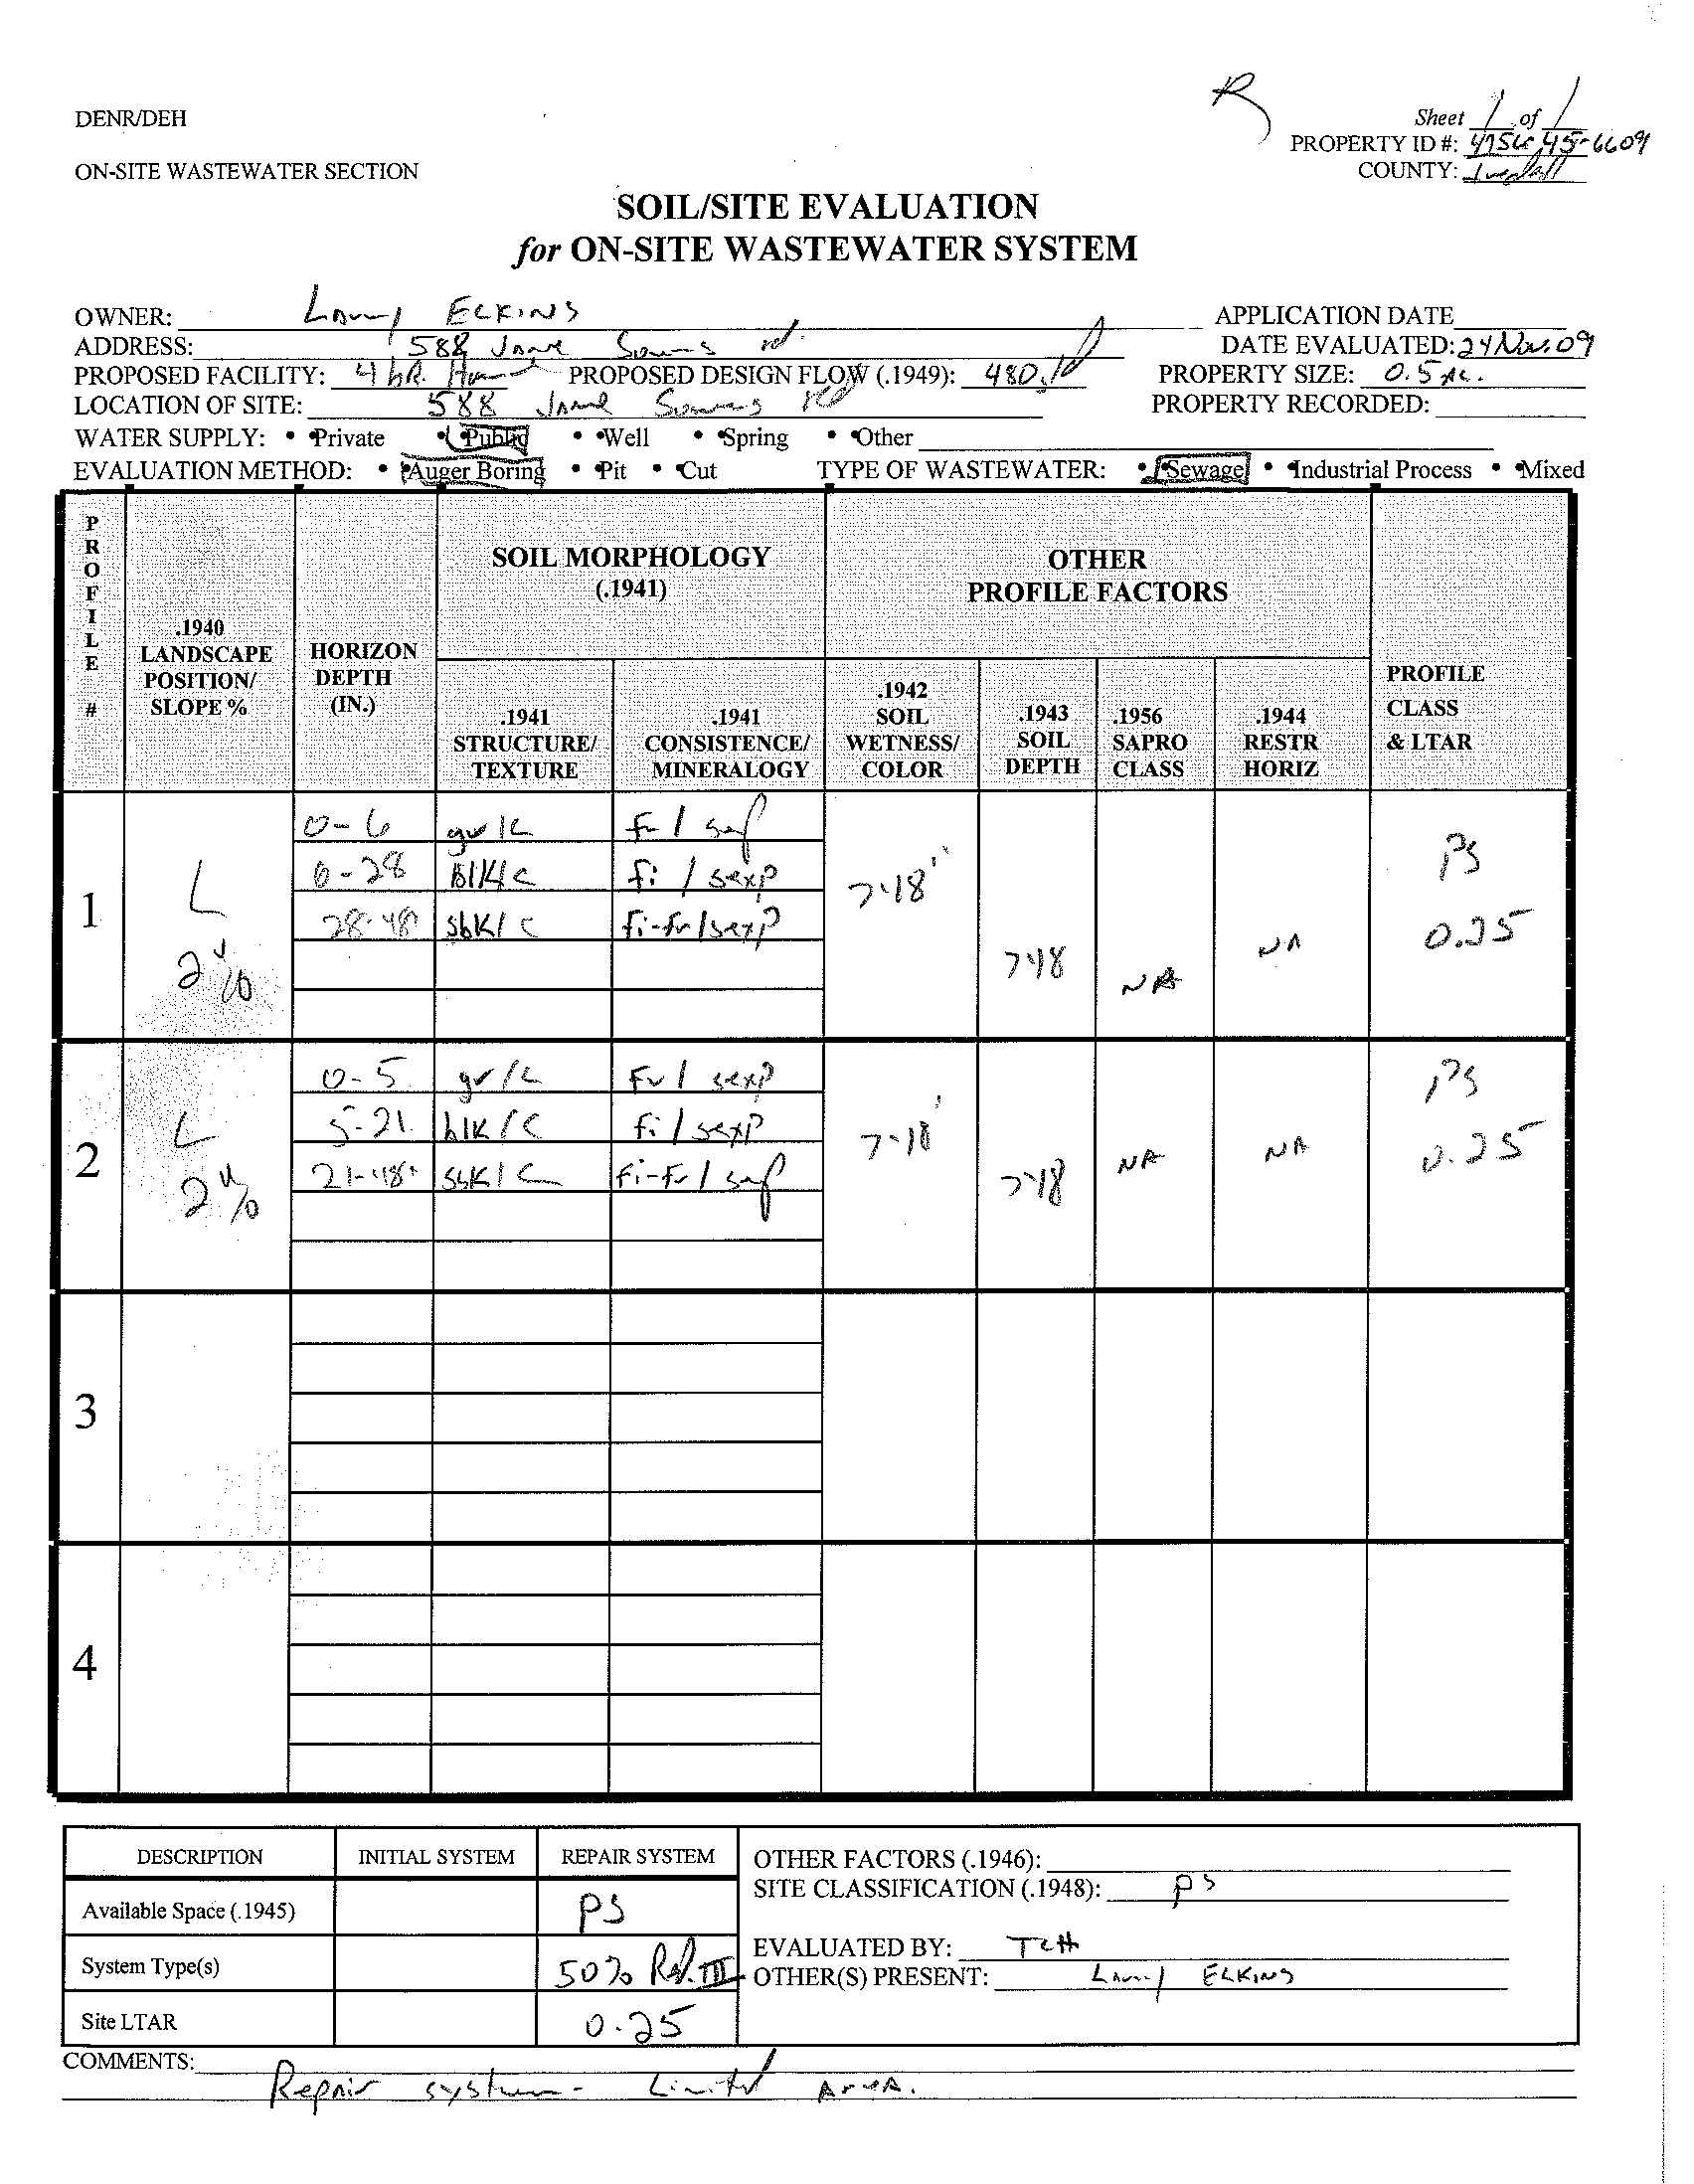 R
DENR/DEH
Sheet 1 of 1
PROPERTY ID #: 4756-45-6609
ON-SITE WASTEWATER SECTION
COUNTY: Iredell
SOIL/SITE EVALUATION
for ON-SITE WASTEWATER SYSTEM
OWNER: Larry ELKINS
APPLICATION DATE
ADDRESS: 588 Jane Sowers rd.
DATE EVALUATED: 24 Nov. 09
PROPOSED FACILITY: 4 bR. Home PROPOSED DESIGN FLOW (.1949): 480 PROPERTY SIZE: 0.5 Ac.
LOCATION OF SITE: 588 Jane Sowers Rd PROPERTY RECORDED:
WATER SUPPLY: • Private • Public • Well • Spring • Other
EVALUATION METHOD: • Auger Boring • Pit • Cut TYPE OF WASTEWATER: • Sewage • Industrial Process • Mixed
PROFILE #
.1940 LANDSCAPE POSITION/ SLOPE %
HORIZON DEPTH (IN.)
SOIL MORPHOLOGY (.1941)
.1941 STRUCTURE/ TEXTURE
.1941 CONSISTENCE/ MINERALOGY
OTHER PROFILE FACTORS
.1942 SOIL WETNESS/ COLOR
.1943 SOIL DEPTH
.1956 SAPRO CLASS
.1944 RESTR HORIZ
PROFILE CLASS & LTAR
1
L 2%
0-6 gr/L fr/
6-28 Blk/c fi/sexp
28-48 sbk/c fi-fr/sexp
>48"
>48
NA
NA
PS
0.25
2
L 2%
0-5 gr/L Fr/sexp
5-21 blk/c fi/sexp
21-48 sbk/c fi-fr/
>48
NA
NA
PS
0.25
3
4
DESCRIPTION INITIAL SYSTEM REPAIR SYSTEM
Available Space (.1945) PS
System Type(s) 50% Red. III
Site LTAR 0.25
OTHER FACTORS (.1946):
SITE CLASSIFICATION (.1948): PS
EVALUATED BY: TCH
OTHER(S) PRESENT: Larry ELKINS
COMMENTS:
Repair system - Limited AreA.